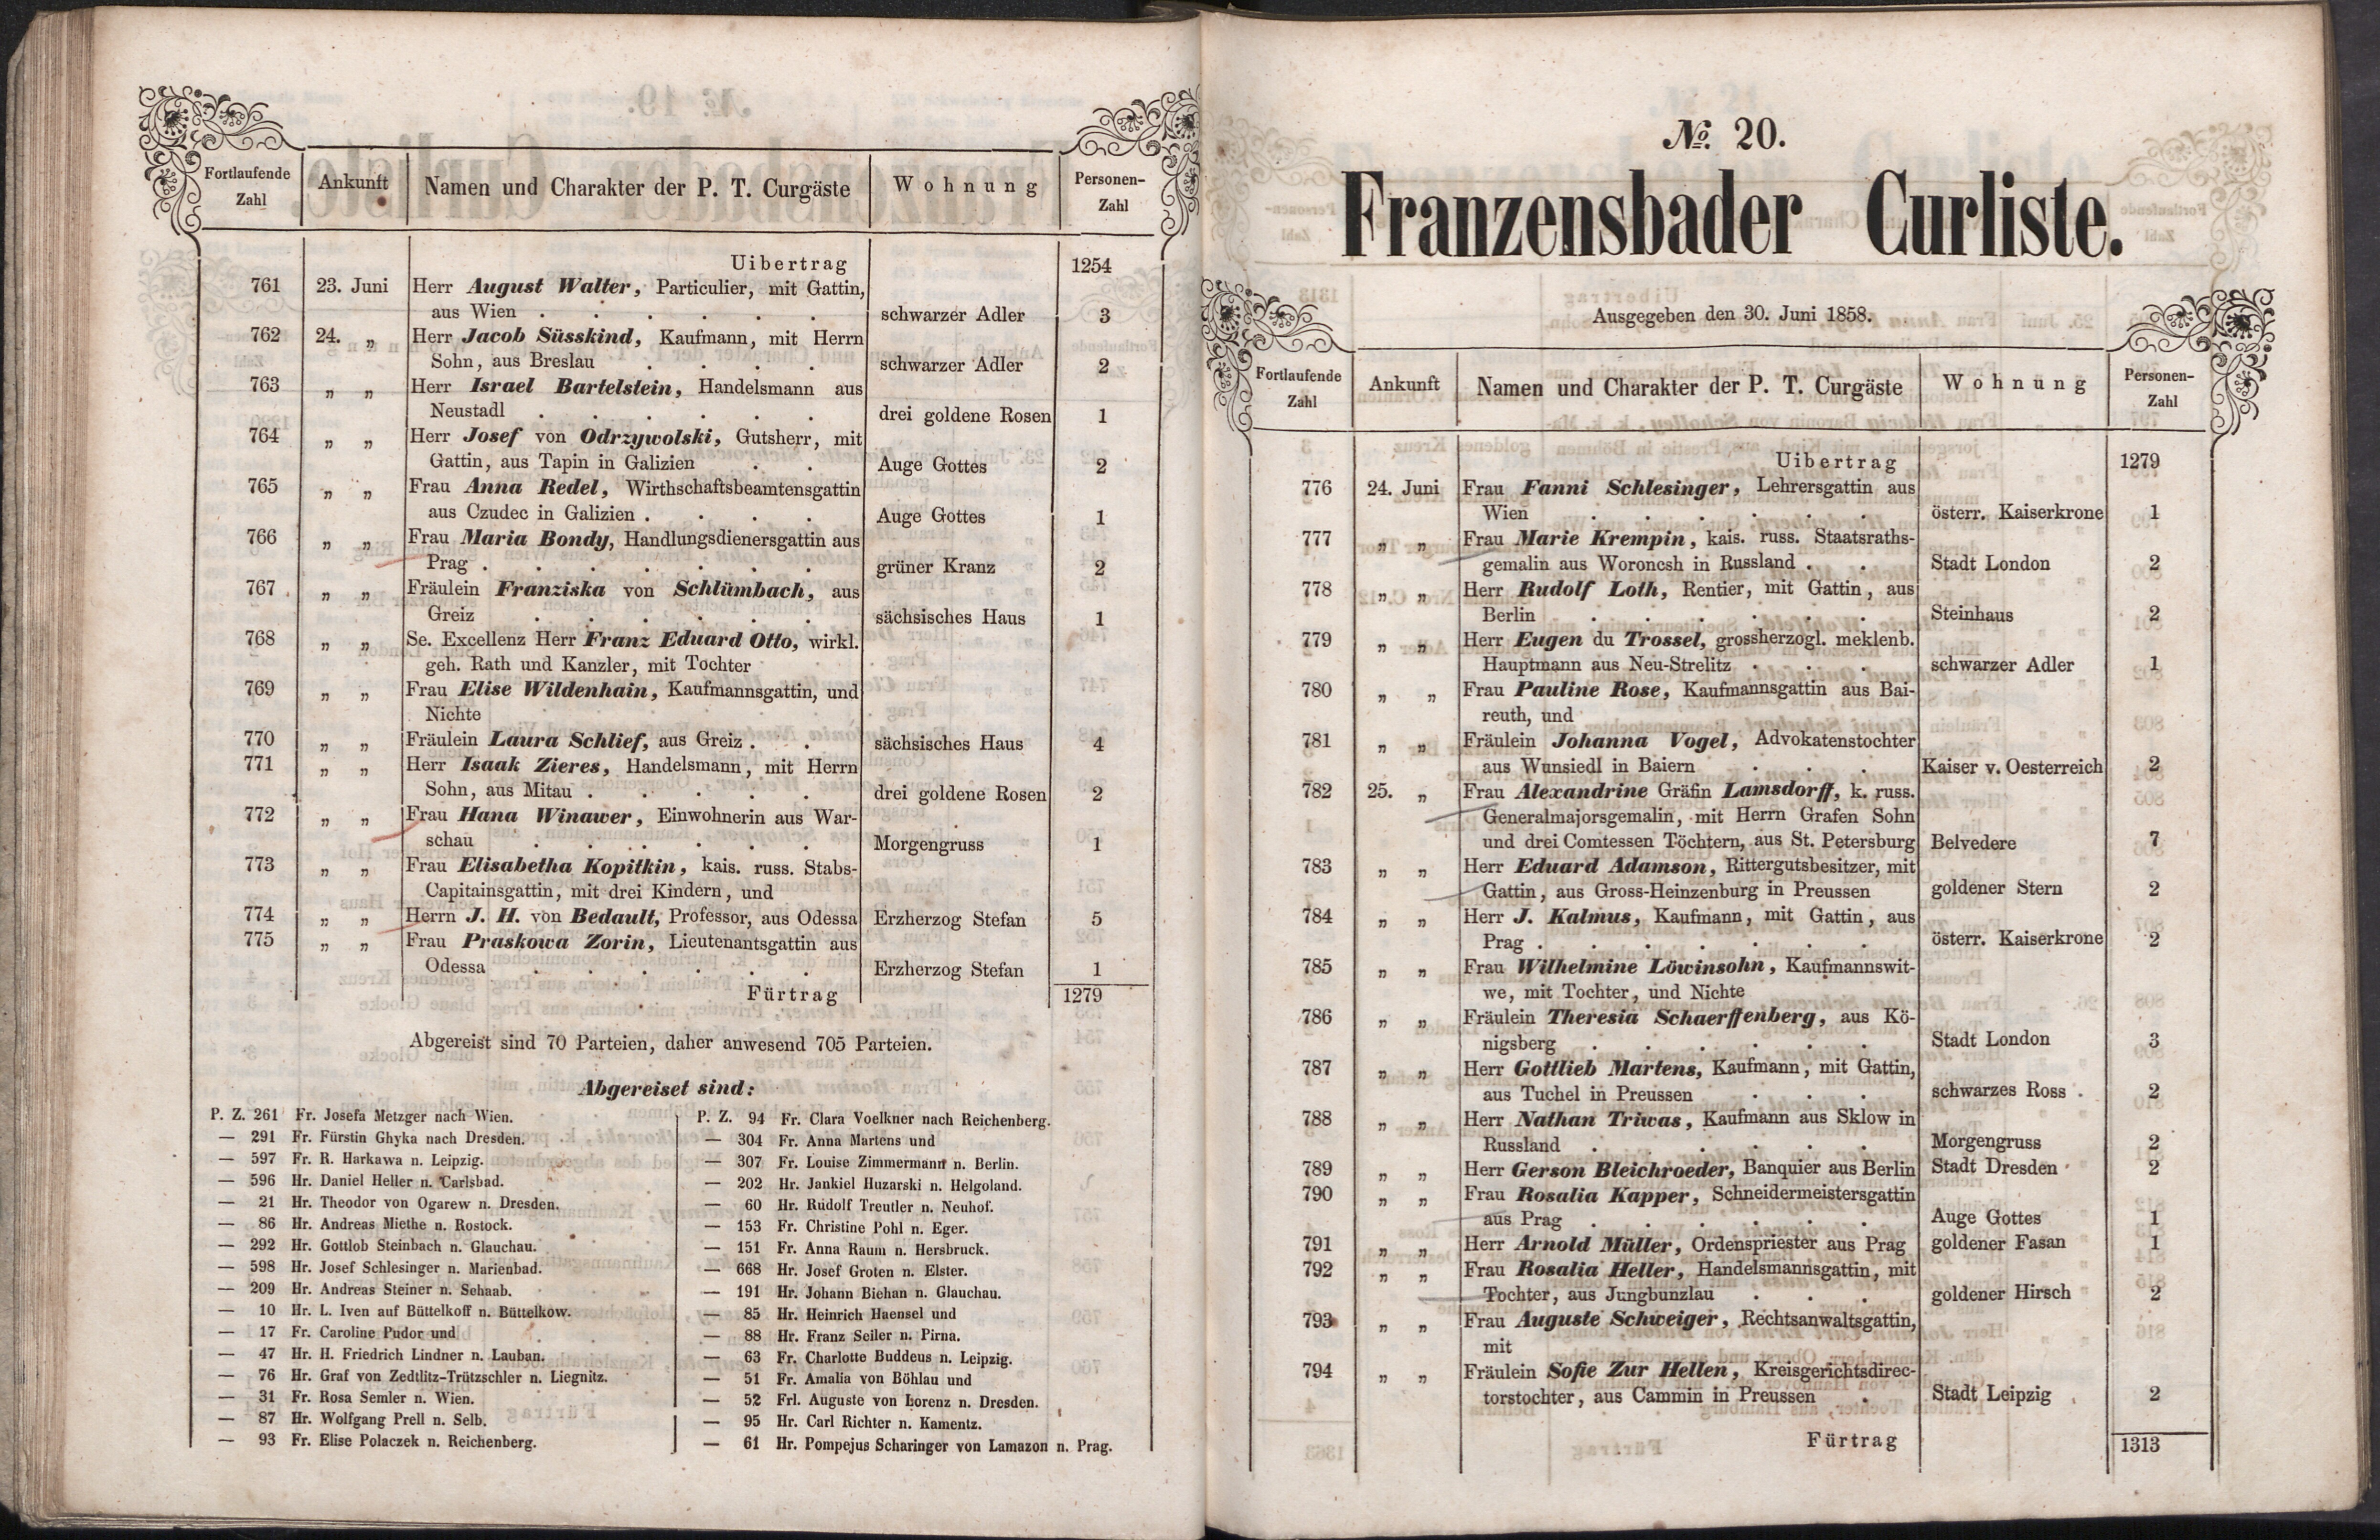 Fortlaufende Zahl | Ankunft | Namen und Charakter der P. T. Curgäste | Wohnung | Personen-Zahl
Uibertrag 1254
761 23. Juni Herr August Walter, Particulier, mit Gattin,
aus Wien . . . . . . schwarzer Adler 3
762 24. „ Herr Jacob Süsskind, Kaufmann, mit Herrn
Sohn, aus Breslau . . . . schwarzer Adler 2
763 „ „ Herr Israel Bartelstein, Handelsmann aus
Neustadl . . . . . . drei goldene Rosen 1
764 „ „ Herr Josef von Odrzywolski, Gutsherr, mit
Gattin, aus Tapin in Galizien . . Auge Gottes 2
765 „ „ Frau Anna Redel, Wirthschaftsbeamtensgattin
aus Czudec in Galizien . . . . Auge Gottes 1
766 „ „ Frau Maria Bondy, Handlungsdienersgattin aus
Prag . . . . . . . grüner Kranz 2
767 „ „ Fräulein Franziska von Schlümbach, aus
Greiz . . . . . . sächsisches Haus 1
768 „ „ Se. Excellenz Herr Franz Eduard Otto, wirkl.
geh. Rath und Kanzler, mit Tochter
769 „ „ Frau Elise Wildenhain, Kaufmannsgattin, und
Nichte
770 „ „ Fräulein Laura Schlief, aus Greiz . . sächsisches Haus 4
771 „ „ Herr Isaak Zieres, Handelsmann, mit Herrn
Sohn, aus Mitau . . . . . drei goldene Rosen 2
772 „ „ Frau Hana Winawer, Einwohnerin aus War-
schau . . . . . . Morgengruss 1
773 „ „ Frau Elisabetha Kopitkin, kais. russ. Stabs-
Capitainsgattin, mit drei Kindern, und
774 „ „ Herrn J. H. von Bedault, Professor, aus Odessa Erzherzog Stefan 5
775 „ „ Frau Praskowa Zorin, Lieutenantsgattin aus
Odessa . . . . . . Erzherzog Stefan 1
Fürtrag 1279
Abgereist sind 70 Parteien, daher anwesend 705 Parteien.
Abgereiset sind:
P. Z. 261 Fr. Josefa Metzger nach Wien.
— 291 Fr. Fürstin Ghyka nach Dresden.
— 597 Fr. R. Harkawa n. Leipzig.
— 596 Hr. Daniel Heller n. Carlsbad.
— 21 Hr. Theodor von Ogarew n. Dresden.
— 86 Hr. Andreas Miethe n. Rostock.
— 292 Hr. Gottlob Steinbach n. Glauchau.
— 598 Hr. Josef Schlesinger n. Marienbad.
— 209 Hr. Andreas Steiner n. Schaab.
— 10 Hr. L. Iven auf Büttelkoff n. Büttelkow.
— 17 Fr. Caroline Pudor und
— 47 Hr. H. Friedrich Lindner n. Lauban.
— 76 Hr. Graf von Zedtlitz-Trützschler n. Liegnitz.
— 31 Fr. Rosa Semler n. Wien.
— 87 Hr. Wolfgang Prell n. Selb.
— 93 Fr. Elise Polaczek n. Reichenberg.
P. Z. 94 Fr. Clara Voelkner nach Reichenberg.
— 304 Fr. Anna Martens und
— 307 Fr. Louise Zimmermann n. Berlin.
— 202 Hr. Jankiel Huzarski n. Helgoland.
— 60 Hr. Rudolf Treutler n. Neuhof.
— 153 Fr. Christine Pohl n. Eger.
— 151 Fr. Anna Raum n. Hersbruck.
— 668 Hr. Josef Groten n. Elster.
— 191 Hr. Johann Biehan n. Glauchau.
— 85 Hr. Heinrich Haensel und
— 88 Hr. Franz Seiler n. Pirna.
— 63 Fr. Charlotte Buddeus n. Leipzig.
— 51 Fr. Amalia von Böhlau und
— 52 Frl. Auguste von Lorenz n. Dresden.
— 95 Hr. Carl Richter n. Kamentz.
— 61 Hr. Pompejus Scharinger von Lamazon n. Prag.
№. 20.
Franzensbader Curliste.
Ausgegeben den 30. Juni 1858.
Fortlaufende Zahl | Ankunft | Namen und Charakter der P. T. Curgäste | Wohnung | Personen-Zahl
Uibertrag 1279
776 24. Juni Frau Fanni Schlesinger, Lehrersgattin aus
Wien . . . . . . österr. Kaiserkrone 1
777 „ „ Frau Marie Krempin, kais. russ. Staatsraths-
gemalin aus Woronesh in Russland . . Stadt London 2
778 „ „ Herr Rudolf Loth, Rentier, mit Gattin, aus
Berlin . . . . . . Steinhaus 2
779 „ „ Herr Eugen du Trossel, grossherzogl. meklenb.
Hauptmann aus Neu-Strelitz . . . schwarzer Adler 1
780 „ „ Frau Pauline Rose, Kaufmannsgattin aus Bai-
reuth, und
781 „ „ Fräulein Johanna Vogel, Advokatenstochter
aus Wunsiedl in Baiern . . . Kaiser v. Oesterreich 2
782 25. „ Frau Alexandrine Gräfin Lamsdorff, k. russ.
Generalmajorsgemalin, mit Herrn Grafen Sohn
und drei Comtessen Töchtern, aus St. Petersburg Belvedere 7
783 „ „ Herr Eduard Adamson, Rittergutsbesitzer, mit
Gattin, aus Gross-Heinzenburg in Preussen goldener Stern 2
784 „ „ Herr J. Kalmus, Kaufmann, mit Gattin, aus
Prag . . . . . . . österr. Kaiserkrone 2
785 „ „ Frau Wilhelmine Löwinsohn, Kaufmannswit-
we, mit Tochter, und Nichte
786 „ „ Fräulein Theresia Schaerffenberg, aus Kö-
nigsberg . . . . . . Stadt London 3
787 „ „ Herr Gottlieb Martens, Kaufmann, mit Gattin,
aus Tuchel in Preussen . . . schwarzes Ross . 2
788 „ „ Herr Nathan Triwas, Kaufmann aus Sklow in
Russland . . . . . . Morgengruss 2
789 „ „ Herr Gerson Bleichroeder, Banquier aus Berlin Stadt Dresden 2
790 „ „ Frau Rosalia Kapper, Schneidermeistersgattin
aus Prag . . . . . . Auge Gottes 1
791 „ „ Herr Arnold Müller, Ordenspriester aus Prag goldener Fasan 1
792 „ „ Frau Rosalia Heller, Handelsmannsgattin, mit
Tochter, aus Jungbunzlau . . . goldener Hirsch 2
793 „ „ Frau Auguste Schweiger, Rechtsanwaltsgattin,
mit
794 „ „ Fräulein Sofie Zur Hellen, Kreisgerichtsdirec-
torstochter, aus Cammin in Preussen . Stadt Leipzig 2
Fürtrag 1313